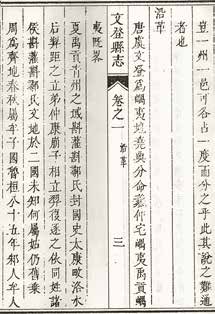 豈一州一邑可各占一度而分之乎此其說之難通
者也
沿革
唐虞文登為嵎夷地堯典分命羲仲宅嵎夷禹貢嵎
文登縣志 卷之一 沿革 三
夷既畧
夏禹貢青州之域斟灌斟鄩氏封國史太康畋洛水
后羿距之立弟仲康崩子相立羿復逐之依同姓諸
侯斟灌斟鄩氏文地於二國未知何屬姑仍舊乘
周為齊地春秋屬牟子國魯桓公十五年邾人牟人